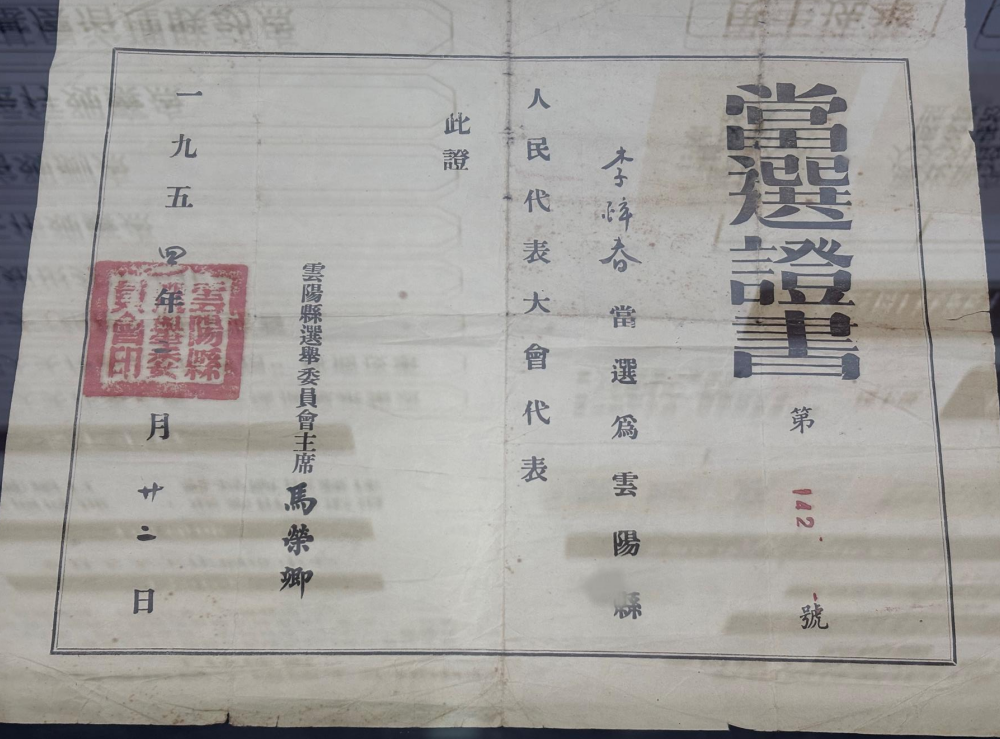 當選證書
第142號
李梓春當選爲雲陽縣
人民代表大會代表
此證
雲陽縣選舉委員會主席馬榮卿
一九五四年二月廿二日
雲陽縣
選舉委
員會印